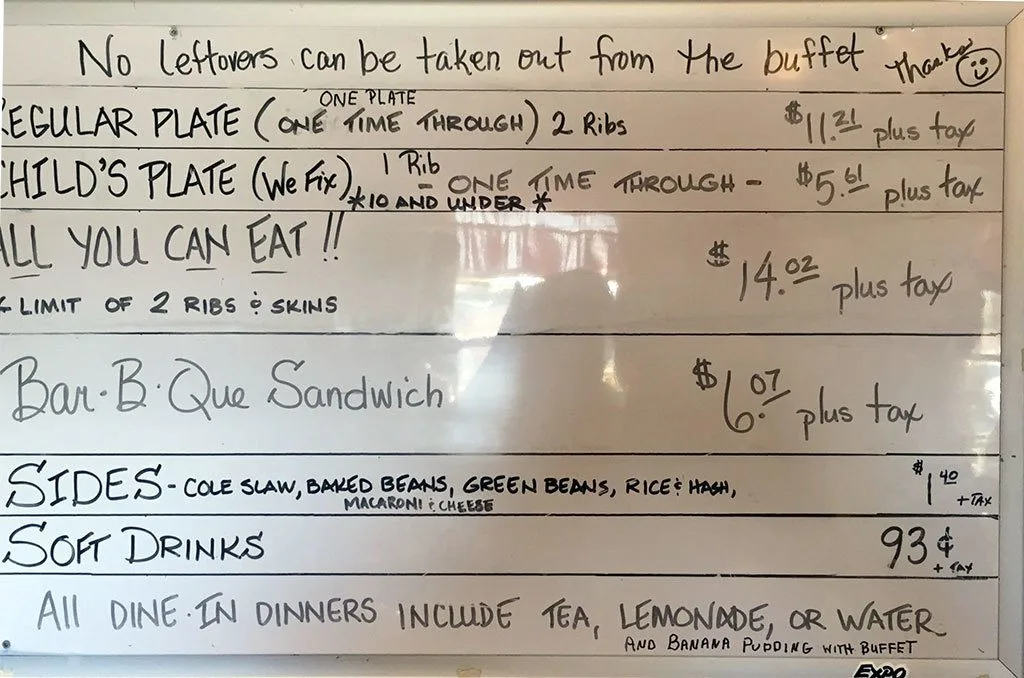 No leftovers can be taken out from the buffet Thanks
ONE PLATE
EGULAR PLATE (ONE TIME THROUGH) 2 Ribs $11.21 plus tax
1 Rib
CHILD'S PLATE (We Fix) - ONE TIME THROUGH - $5.61 plus tax
*10 AND UNDER*
ALL YOU CAN EAT!! $14.02 plus tax
LIMIT OF 2 RIBS & SKINS
Bar-B-Que Sandwich $6.07 plus tax
SIDES - COLE SLAW, BAKED BEANS, GREEN BEANS, RICE & HASH, $1.40 + TAX
MACARONI & CHEESE
SOFT DRINKS 93¢ + TAX
All DINE-IN DINNERS INCLUDE TEA, LEMONADE, OR WATER
AND BANANA PUDDING WITH BUFFET
EXPO